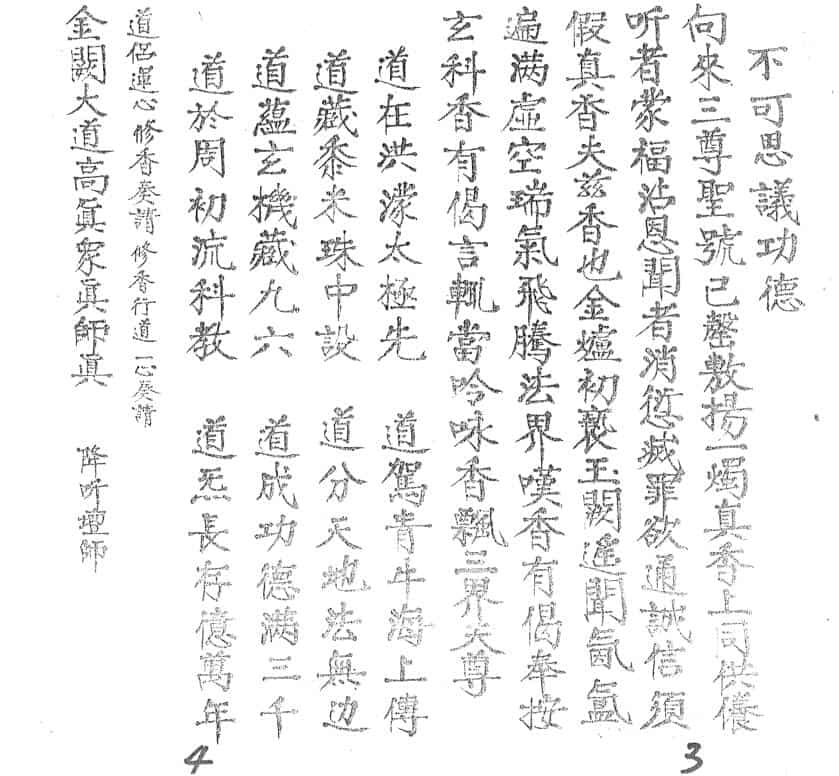 不可思議功德
向來三尊聖號已罄敷揚一燭真香上同供養
听者蒙福沾恩聞者消愆滅罪欲通誠信須
假真香夫茲香也金爐初爇玉闕遙聞氤氳
遍满虛空瑞氣飛騰法界嘆香有偈奉按
玄科香有偈言輒當吟咏香飄三界天尊
道在洪濛太極先 道駕青牛海上傳
道藏黍米珠中設 道分天地法無边
道蘊玄機藏九六 道成功德满三千
道於周初流科教 道炁長存億萬年
道侶運心修香癸請修香行道一心癸請
金闕大道高真眾真師真 降听壇師
3
4